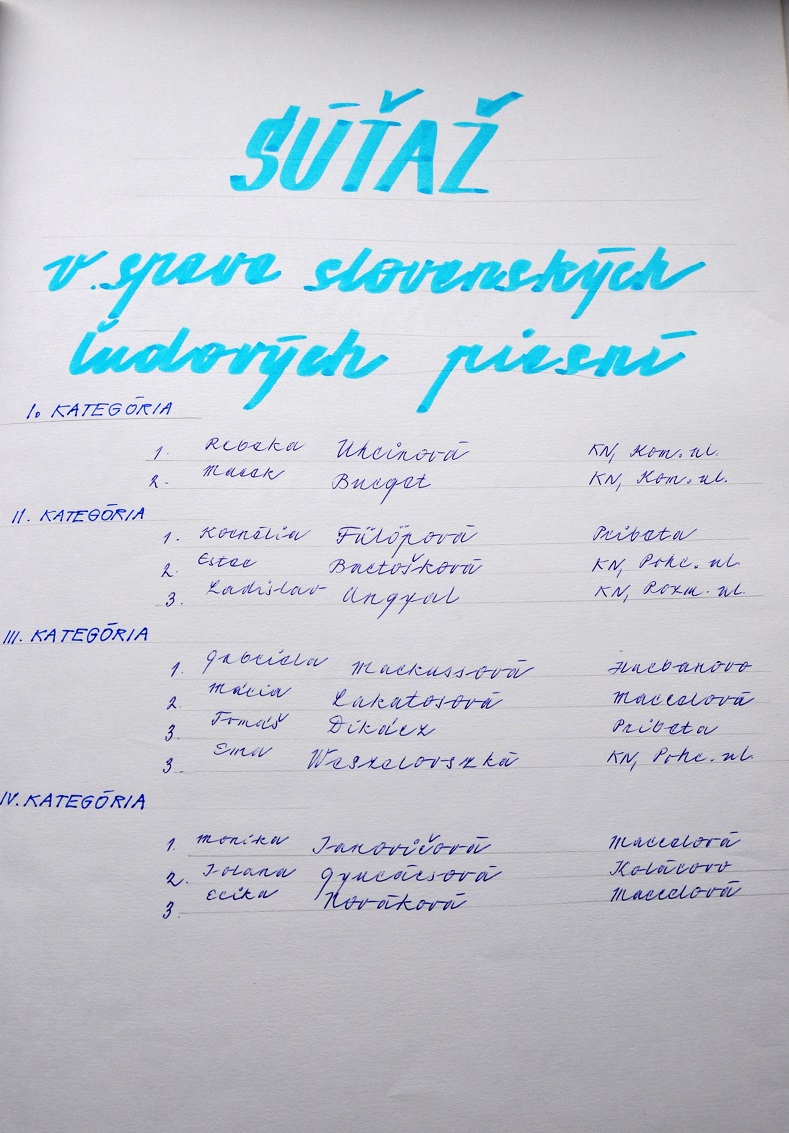 SÚŤAŽ
v speve slovenských
ľudových piesní
I. KATEGÓRIA
1. Rebeka Uhrinová KN, Kom. ul.
2. Marek Burget KN, Kom. ul.
II. KATEGÓRIA
1. Kornélia Fülöpová Pribeta
2. Ester Bartošková KN, Pohr. ul.
3. Ladislav Angyal KN, Rozm. ul.
III. KATEGÓRIA
1. Gabriela Markussová Hurbanovo
2. Mária Lakatosová Marcelová
3. Tomáš Dikácz Pribeta
3. Ema Weszelovszká KN, Pohr. ul.
IV. KATEGÓRIA
1. Monika Janovičová Marcelová
2. Jolana Gyurácsová Kolárovo
3. Erika Nováková Marcelová